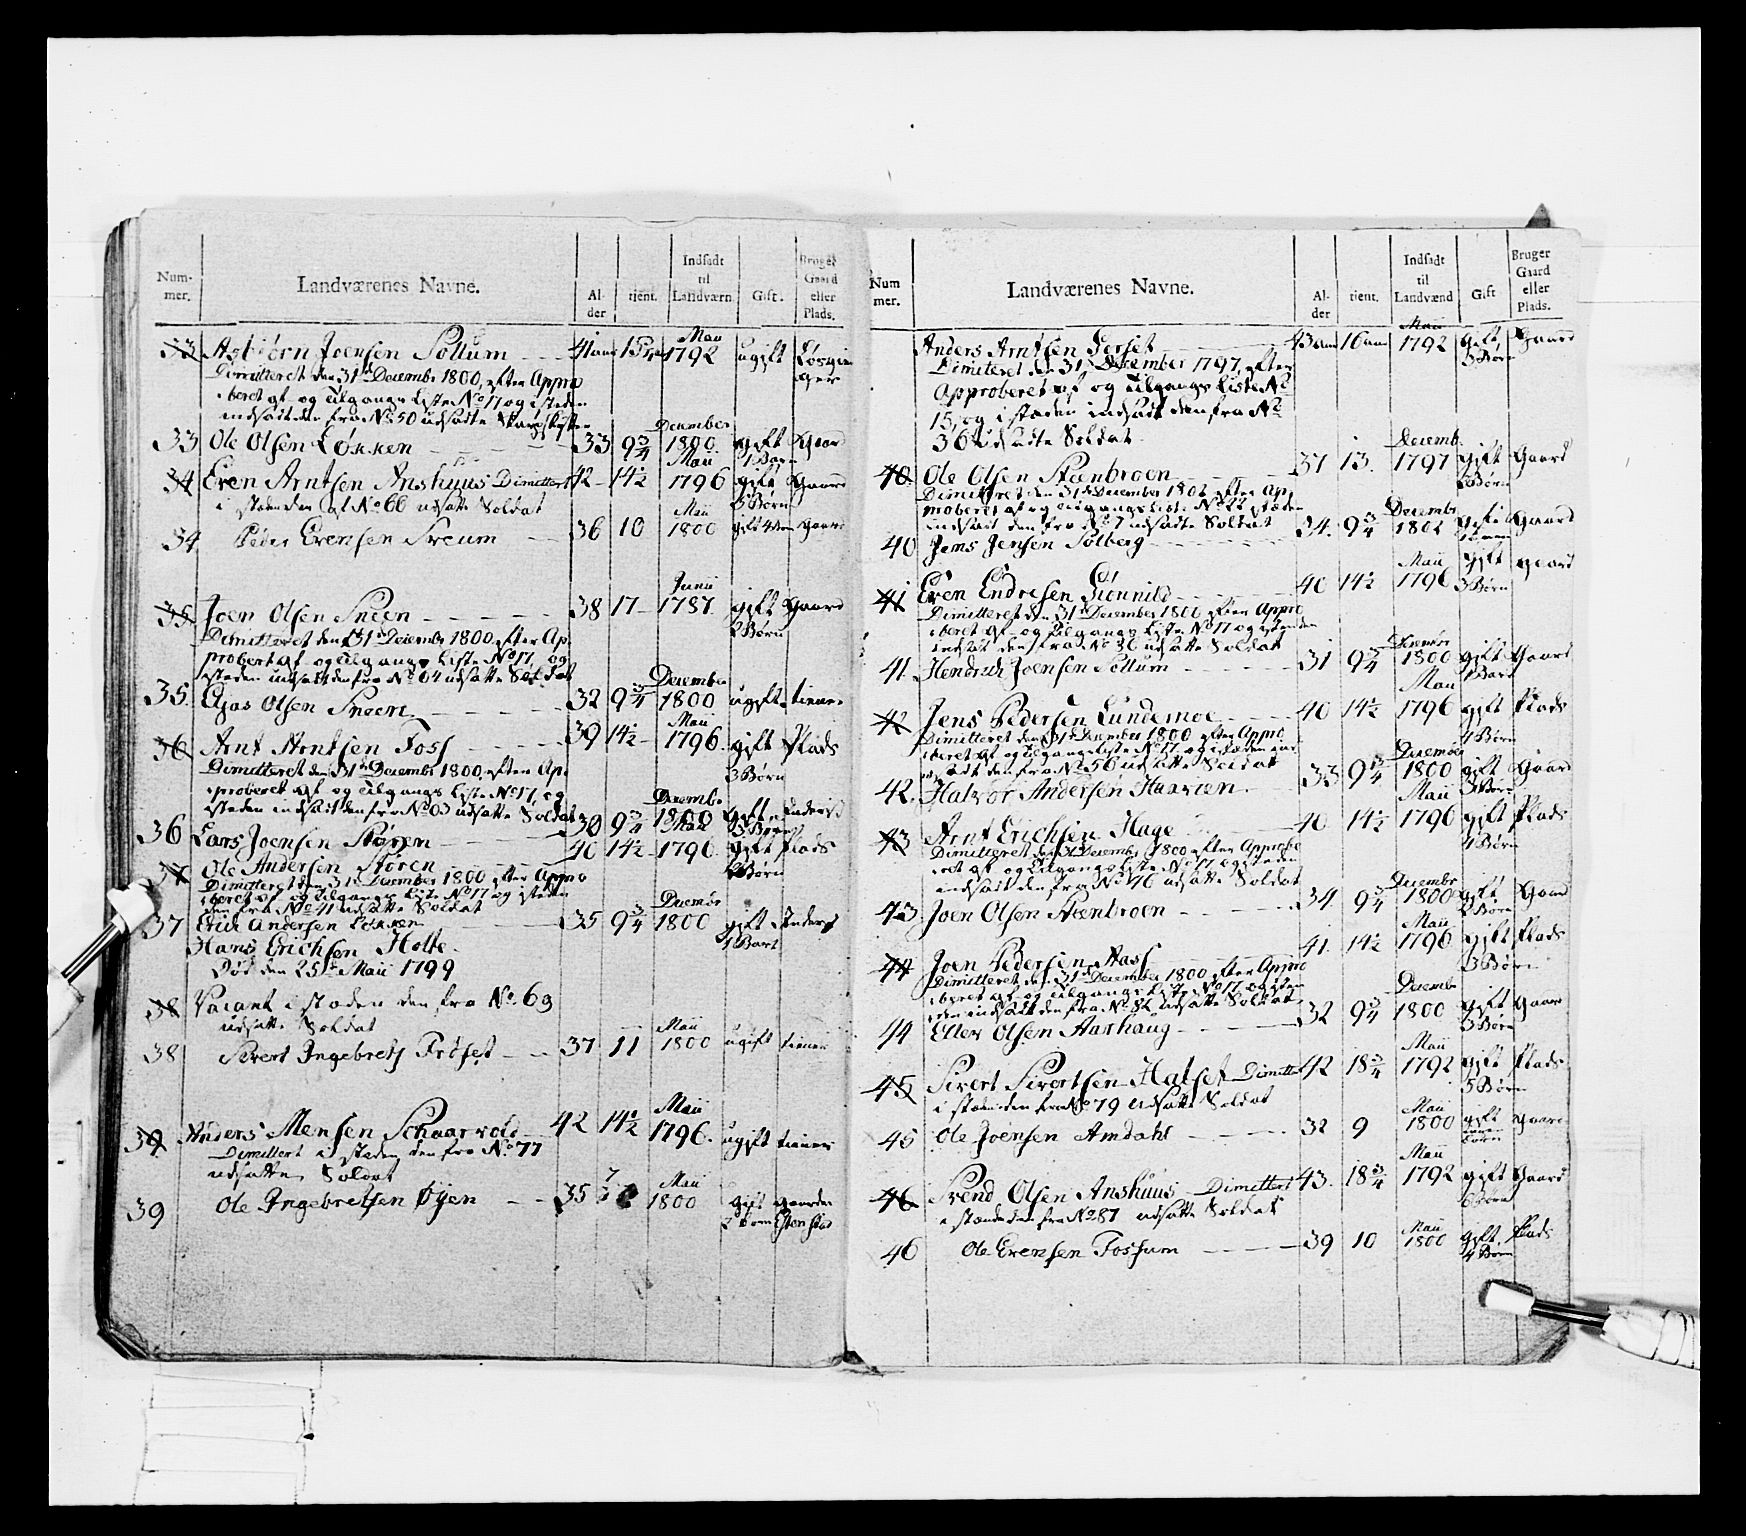 Num-
mer.
Landværenes Navne.
Al-
der
tjent.
Indsadt
til
Landværn
Gift.
Bruger
Gaard
eller
Plads.
33 Asbiørn Joensen Sollum 41 aar 15 Maii 1792 ugift
Dimitteret den 31te December 1800, efter Appro
beret af og Tilgangs Liste No 17 og i steden
indsadt den fra No 50 udsadte
33 Ole Olsen Løkken 33 9 3/4 December 1800 gift 1 Barn Gaard
34 Even Arntsen Anshuus Dimittert 42 14 1/2 Maii 1796 gift 3 Børn Gaard
i stæden den af No 66 udsatte Soldat
34 Peder Evensen Sveum 36 10 Maii 1800 gift 4 Børn Gaard
35 Joen Olsen Sneen 38 17 Junii 1787 gift 2 Børn Gaard
Dimitteret den 31te December 1800 efter Ap-
probert af og Tilgangs Liste No 17, og
isteden indsadt den fra No 64 udsatte Soldat
35. Elias Olsen Sneen 32 9 3/4 December 1800 ugift tiener
36 Arnt Arntsen Foss 39 14 1/2 Maii 1796. gift 3 Børn Plads
Dimitteret den 31te December 1800, efter Ap-
proberet af og Tilgangs Liste No 17, og
isteden indsadt den fra No 63 udsatte Soldat
36 Lars Joensen Støren 30 9 3/4 December 1800 gift 3 Børn
37 Ole Andersen Støren 40 14 1/2 Maii 1796. gift 2 Børn Plads
Dimitteret den 31te December 1800 efter Appro
beret af og Tilgangs Liste No 17 og isteden
den fra No 41 udsatte Soldat
37 Erik Andersen Løkken 35 9 3/4 December 1800 gift 1 Barn
Hans Erichsen Holte.
Død den 25de Maii 1799
38 Vacant i stæden den fra No. 69
udsatte Soldat
38 Sivert Ingebrets Frøset 37 11 Maii 1800 ugift tiener
39 Anders Mensen Schaarvold 42 14 1/2 Maii 1796. ugift tiener
Dimittert i steden den fra No 77
udsatte Soldat
39 Ole Ingebretsen Øyen 35 Maii 1800 gift 2 børn
Num
mer.
Landværenes Navne.
Al-
der
tient.
Indsadt
til
Landvænd
Gift
Bruger
Gaard
eller
Plads.
Anders Arntsen 43 aar 16 aar Maii 1792 gift, 3 Børn Gaard
Dimiteret den 31te December 1797, efter
Approberet af og Tilgangs Liste No
15, og i stæden indsadt den fra No
36 udsadte Soldat
40. Ole Olsen Steenbroen 37 13. Decemb. 1797 gift 2 Børn Gaard
Dimitteret den 31te December 1802 efter Ap-
proberet af og Tilgangs Liste No 22 i stæden
indsadt den fra No 7 udsadte Soldat
40 Jens Jensen Solberg 34. 9 3/4 Decembr 1802 gift Gaard
41 Even Endresen Sionnild 40 14 1/2 Maii 1796 gift 3 Børn gaard
Dimitteret den 31te December 1800 efter Appro
beret af og Tilgangs Liste No 17 og isteden
indsat den fra No 36 udsatte Soldat
41. Hendrich Joensen Sollum 31 9 3/4 December 1800 gift 1 Barn Gaard
42 Jens Pedersen Lundemoe 40 14 1/2 Maii 1796 gift 1 Børn Plads
Dimitteret den 31te December 1800 efter Appro
beret af og Tilgangs Liste No 17, og isteden ind
sadt den fra No 56 udsatte Soldat
42. Halvor Andersen Haaven 33 9 3/4 December 1800 gift 3 Børn Gaard
43 Arnt Erichsen Hage 40 14 1/2 Maii 1796 gift 1 Børn Plads
Dimitteret den 31te December 1800 efter Approbe
ret af og Tilgangs Liste No 17 og isteden
indsadt den fra No 76 udsatte Soldat
43 Joen Olsen Steenbroen 34. 9 3/4 December 1800 gift 2 Børn Gaard
44 Joen Pedersen Aass 41. 14 1/2 Maii 1796 gift 3 Børn Plads
Dimitteret den 31te December 1800 efter Appro
beret af og Tilgangs Liste No 17 og iste
den indsadt den fra No 82 udsatte Soldat
44 Eller Olsen Aarhaug 32 9 3/4 Decembr 1800 gift 3 Børn Gaard
45 Sivert Sivertsen Halset Dimittert 42 18 3/4 Maii 1792 gift 5 Børn Plads
i stæden den fra No 79 udsatte Soldat
45 Ole Joensen Amdahl 32 9 Maii 1800 gift gaard
46 Svend Olsen Anshuus Dimittert 43. 18 3/4 Maii 1792 gift 6 Børn Gaard
i stæden den fra No 87 udsatte Soldat
46 Ole Evensen Fossum 39 10 Maii 1800 gift. 4 Børn Plads